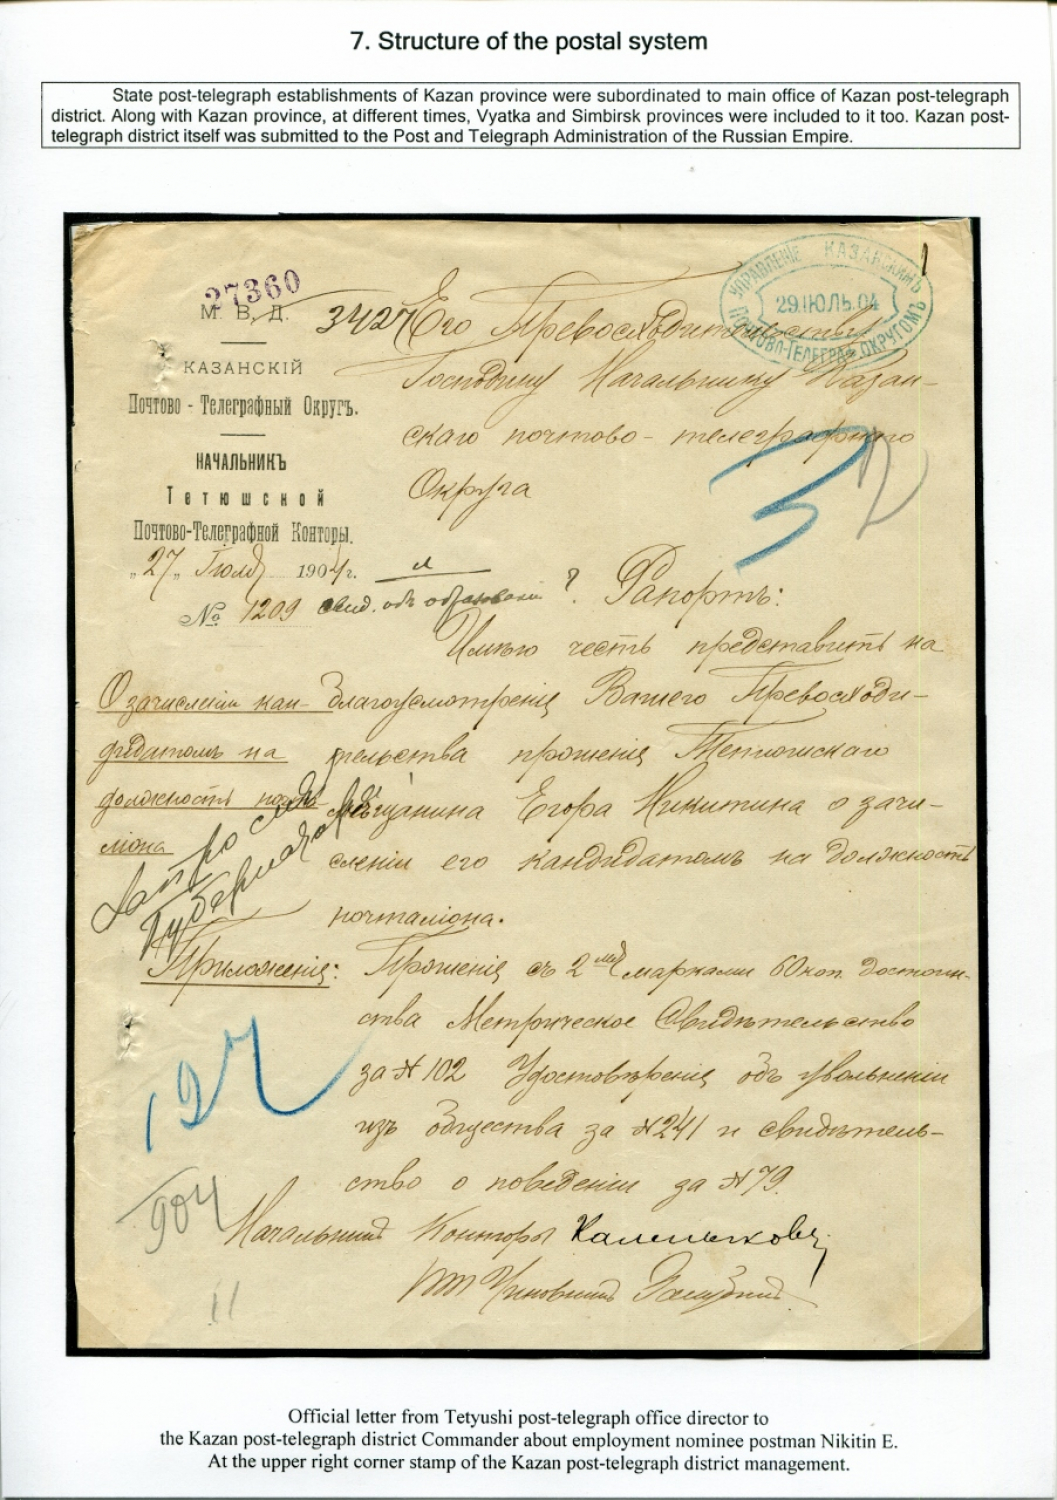 7. Structure of the postal system
State post-telegraph establishments of Kazan province were subordinated to main office of Kazan post-telegraph
district. Along with Kazan province, at different times, Vyatka and Simbirsk provinces were included to it too. Kazan post-
telegraph district itself was submitted to the Post and Telegraph Administration of the Russian Empire.
27360
М. В. Д.
КАЗАНСКІЙ
Почтово - Телеграфный Округъ.
НАЧАЛЬНИКЪ
Тетюшской
Почтово-Телеграфной Конторы.
„27„ Іюля 1904 г.
№ 1209
свид. объ образовани ?
УПРАВЛЕНІЕ КАЗАНСКИМЪ
29.ІЮЛЬ.04
ПОЧТОВО-ТЕЛЕГРАФ. ОКРУГОМЪ
1
3427
Его Превосходительству
Господину Начальнику Казан-
скаго почтово-телеграфнаго
Округа
32
Рапортъ:
Имѣю честь представить на
благоусмотреніе Вашего Превосходи-
тельства прошеніе Тетюшскаго
мѣщанина Егора Никитина о зачи-
сленіи его кандидатомъ на должность
почталіона.
О зачисленіи кан-
дидатомъ на
должность почта-
ліона
Приложеніе:
Прошеніе съ 2мя марками 60 коп. достоин-
ства Метрическое Свидѣтельство
за № 102 Удостовѣреніе объ увольненіи
изъ общества за №241 и свидѣтель-
ство о поведеніи за №79.
127
904
Начальникъ Конторы
11
Official letter from Tetyushi post-telegraph office director to
the Kazan post-telegraph district Commander about employment nominee postman Nikitin E.
At the upper right corner stamp of the Kazan post-telegraph district management.